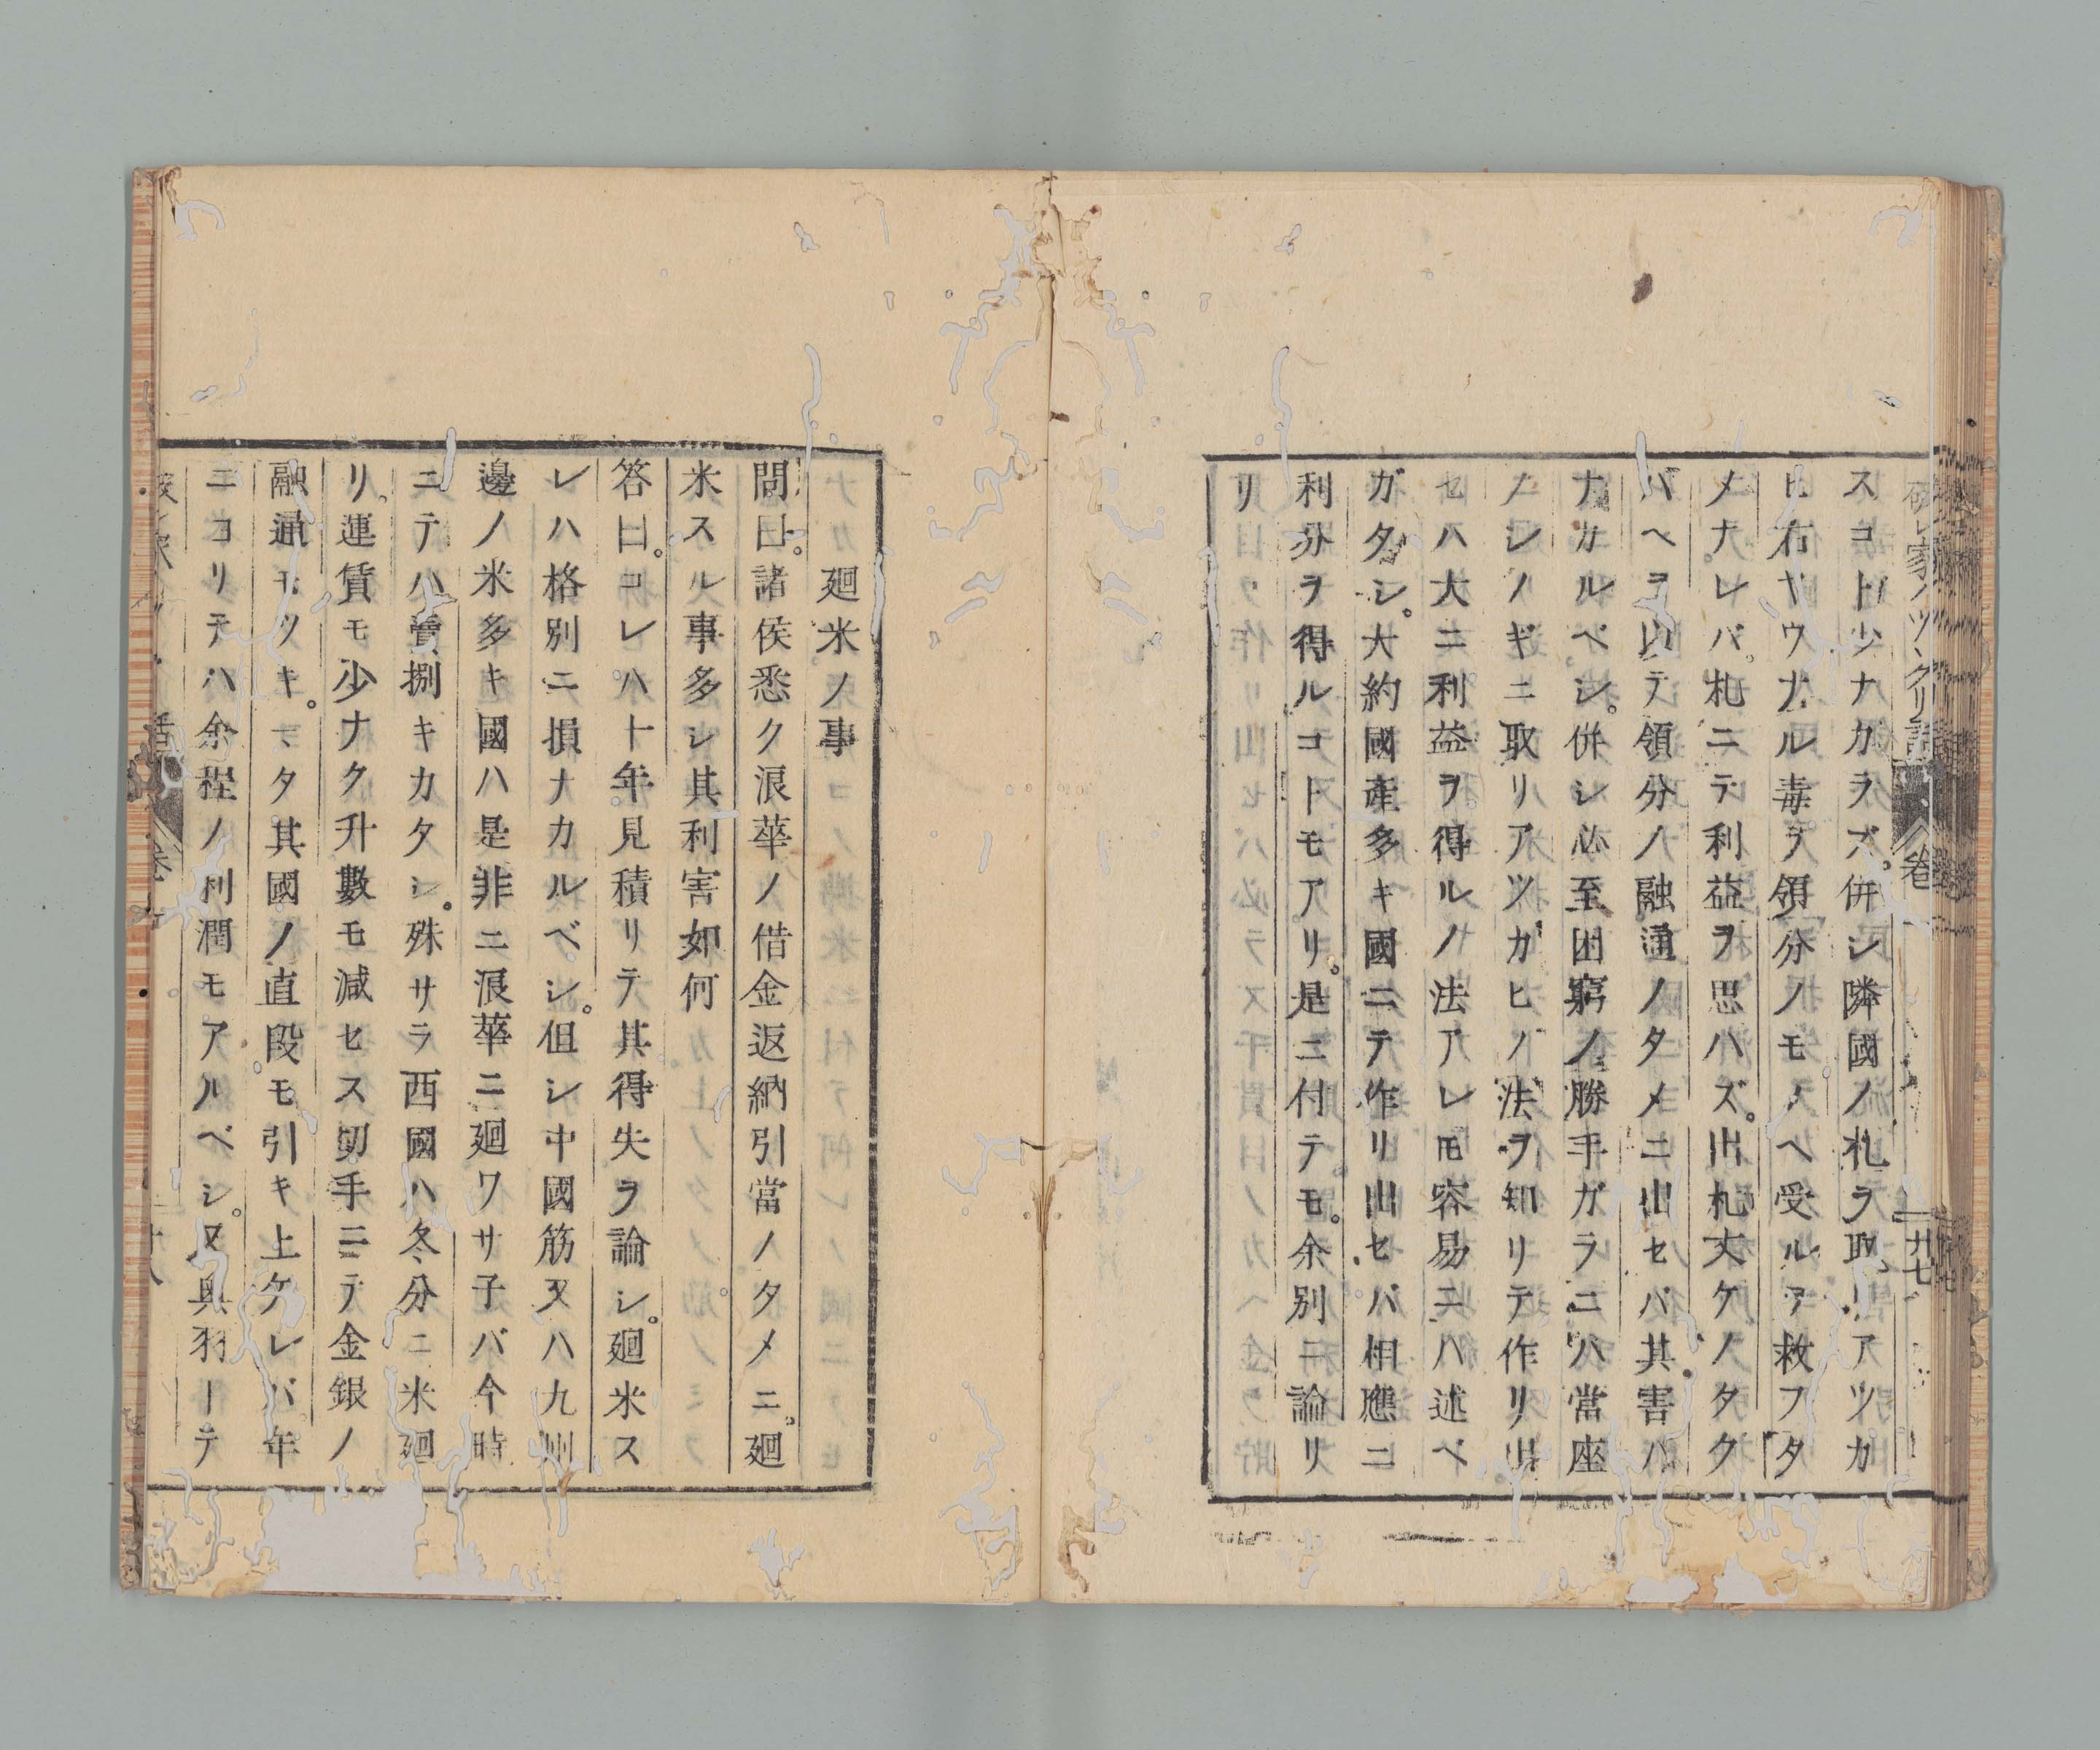 家ノツヽクリ話
卷
廿七
スコト少ナカラズ。併シ隣國ノ札ヲ取リアツカ
ヒ右ヤウナル毒ヲ領分ノモノヘ受ルヿ救フタ
メナレバ。札ニテ利益ヲ思ハズ。出札丈ケノタク
バヘヲ以テ領分ノ融通ノタメニ出セバ其害ハ
ナカルベシ。併シ必至困窮ノ勝手ガラニハ當座
ノシノギニ取リアツカヒノ法ヲ知リテ作リ出。
セハ大ニ利益ヲ得ルノ法アレモ容易ニハ述ベ
ガタシ。大約國產多キ國ニテ作リ出セバ相應ニ
利分ヲ得ルコトモアリ。是ニ付テモ。余別ニ論リ
リ
廻米ノ事
問曰。諸侯悉ク浪華ノ借金返納引當ノタメニ。廻
米スル事多シ其利害如何
答曰。コレハ十年見積リテ其得失ヲ論シ。廻米ス
レハ格別ニ損ナカルベシ。但シ中國筋又ハ九州
邊ノ米多キ國ハ是非ニ浪華ニ廻ワサ子バ今時
ニテハ賣捌キカタシ。殊サラ西國ハ冬分ニ米廻
リ。運賃モ少ナク升數モ減セス切手ニテ金銀ノ
融通モツキ。マタ其國ノ直段モ引キ上ケレバ年
ニコリテハ余程ノ利潤モアルベシ。又奥羽ーテ
卷
廿八